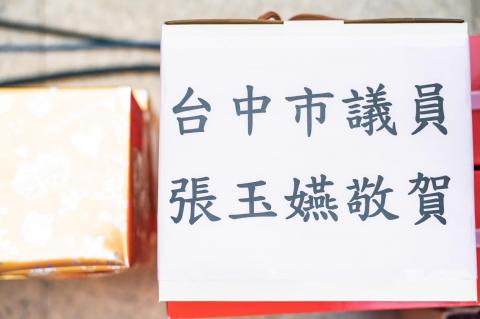 台中市議員
張玉嬿敬賀